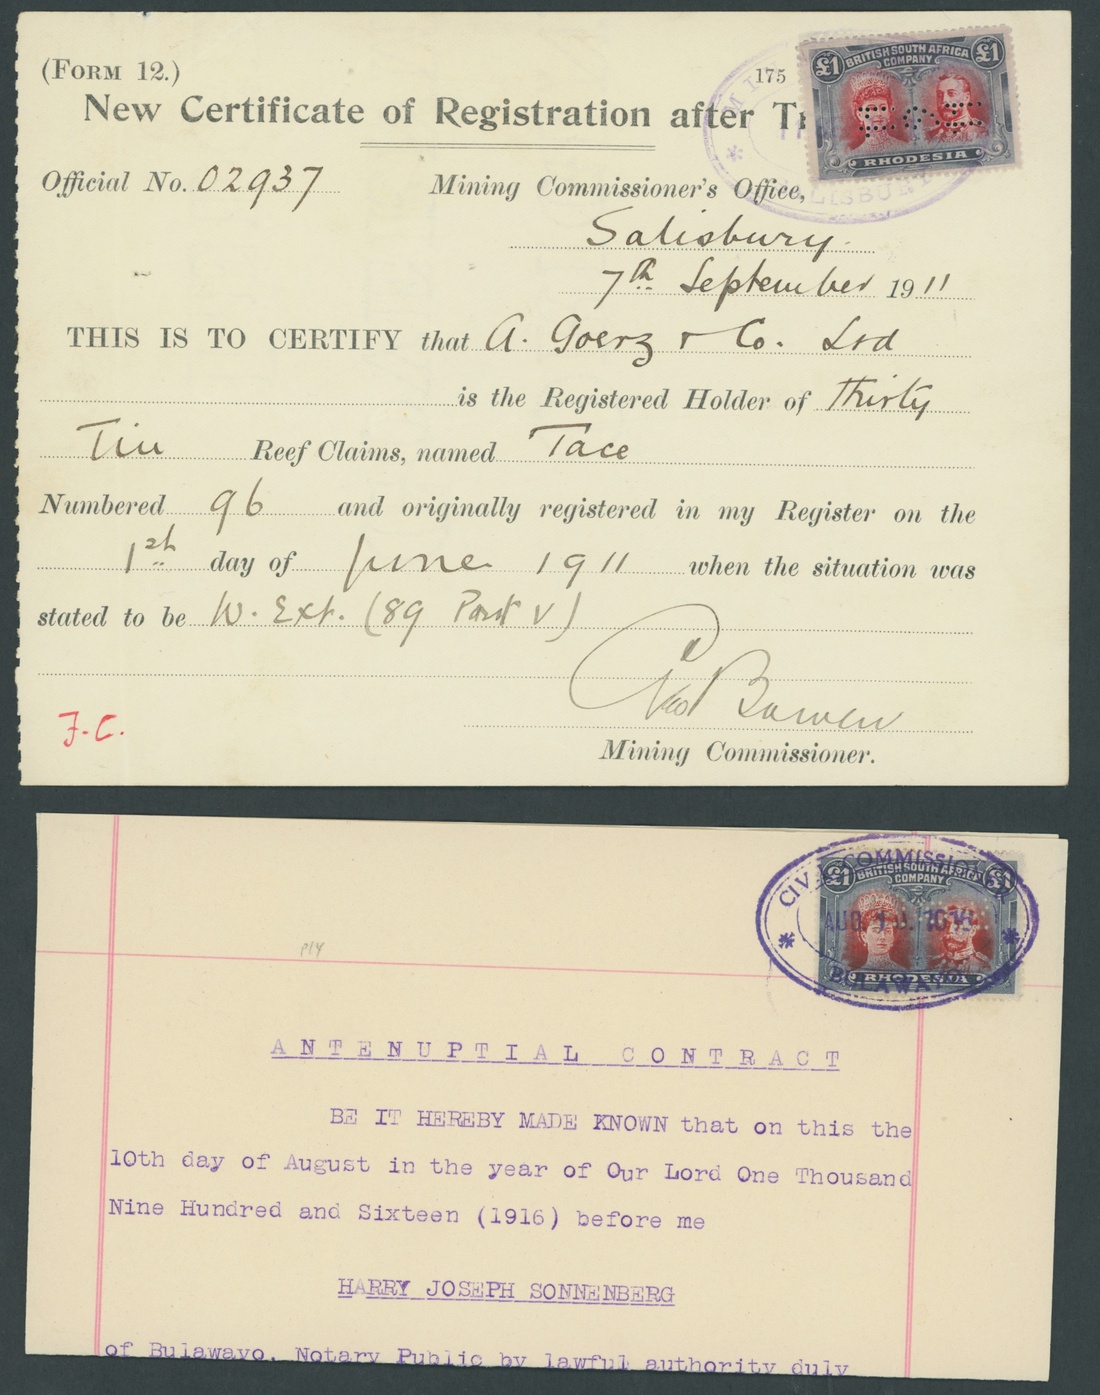 (FORM 12.)
175
New Certificate of Registration after
£1 BRITISH SOUTH AFRICA COMPANY £1
RHODESIA
Official No. 02937
Mining Commissioner's Office,
Salisbury.
7th September 1911
THIS IS TO CERTIFY that A. Goerz & Co. Ltd
is the Registered Holder of Thirty
Tin Reef Claims, named Tace
Numbered 96 and originally registered in my Register on the
1st day of June 1911 when the situation was
stated to be W. Ext. (89 Part V)
Geo Bowen
Mining Commissioner.
F.C.
CIVIL COMMISSIONER
£1 BRITISH SOUTH AFRICA COMPANY
AUG. 10. 1916
RHODESIA
BULAWAYO
ANTENUPTIAL CONTRACT
BE IT HEREBY MADE KNOWN that on this the
10th day of August in the year of Our Lord One Thousand
Nine Hundred and Sixteen (1916) before me
HARRY JOSEPH SONNENBERG
of Bulawayo, Notary Public by lawful authority duly